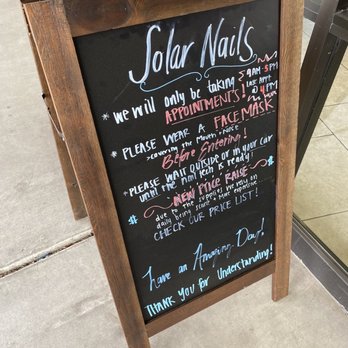 Solar Nails
* we will only be taking
APPOINTMENTS!
9AM-5PM
LAST APPT
@ 4PM
* PLEASE WEAR A FACE MASK
>covering the Mouth + Nose
Before Entering!
* PLEASE WAIT OUTSIDE OR IN YOUR CAR
until the nail tech is ready!
NEW PRICE RAISE
due to the supplies we need on
daily being more expensive
CHECK OUR PRICE LIST!
have an Amazing Day!
THANK YOU for Understanding!